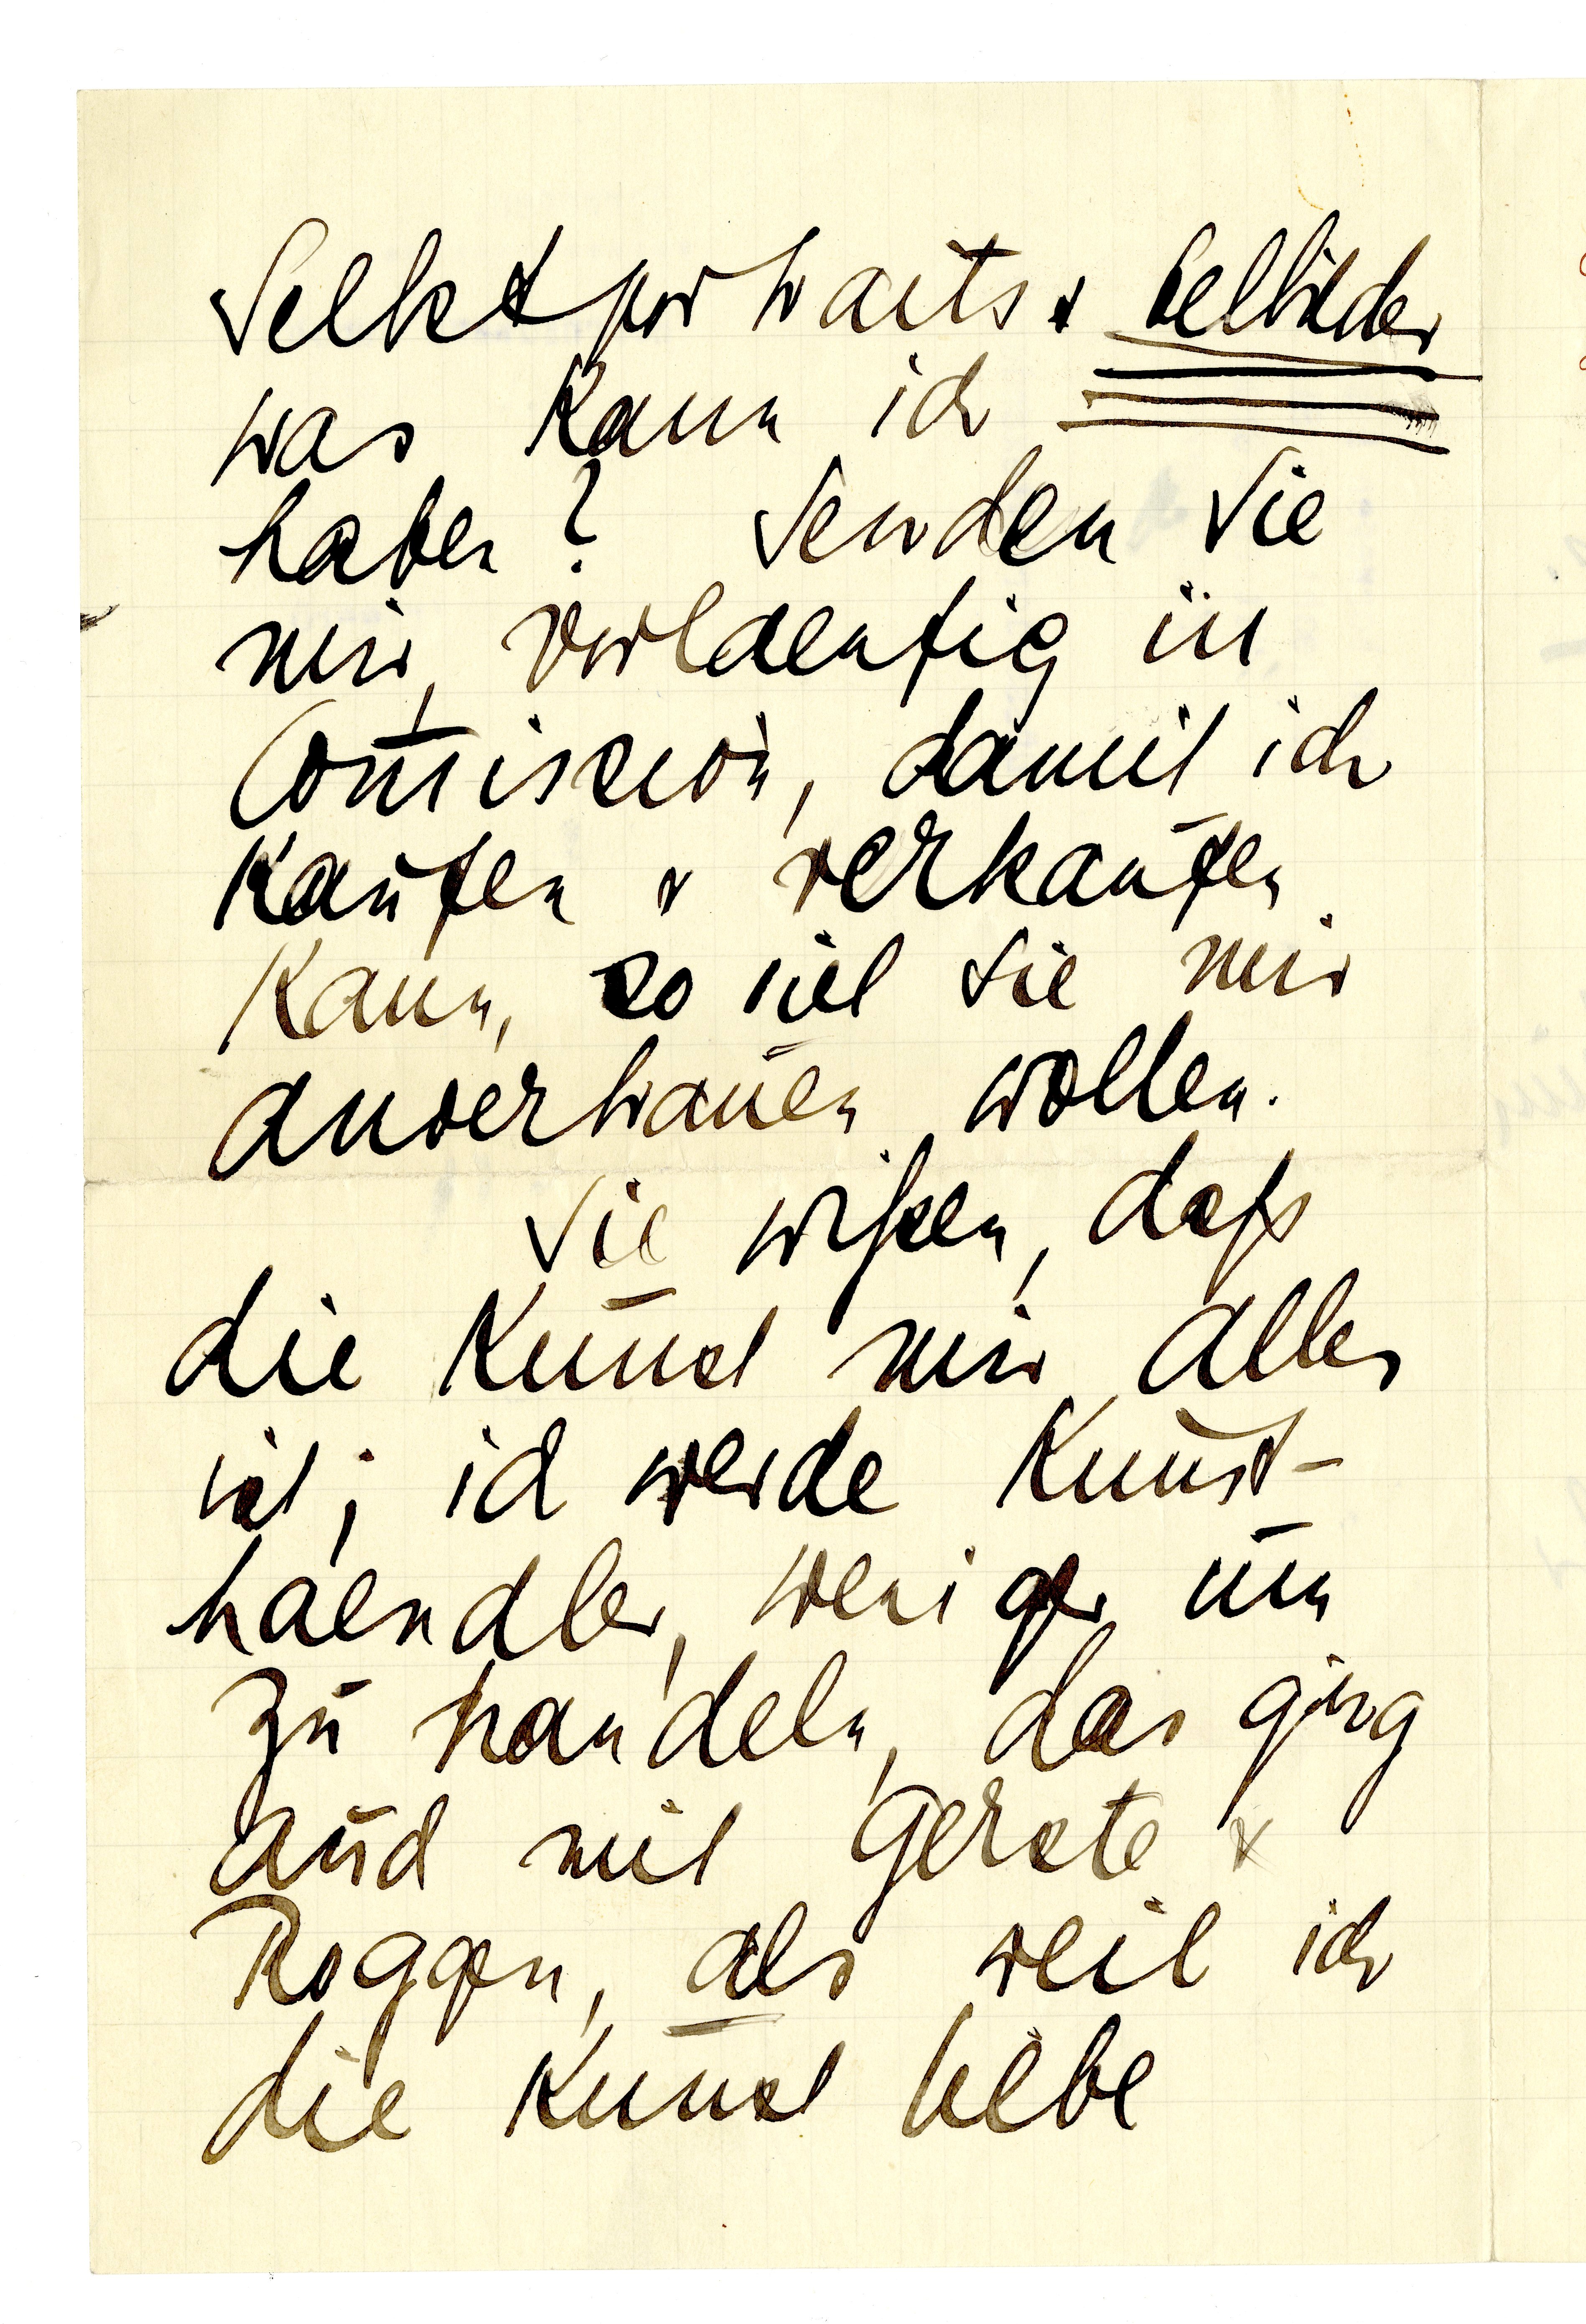 Selbstportraits & Oelbilder
was kann ich
haben? Senden Sie
mir vorlaeufig in
Com̄ission, damit ich
kaufen & verkaufen
kann, so viel Sie mir
anvertrauen wollen.
Sie wißen, daß
die Kunst mir alles
ist; ich werde Kunst-
haendler, weniger um
zu handeln, das ging
auch mit Gerste &
Roggen, als weil ich
die Kunst liebe